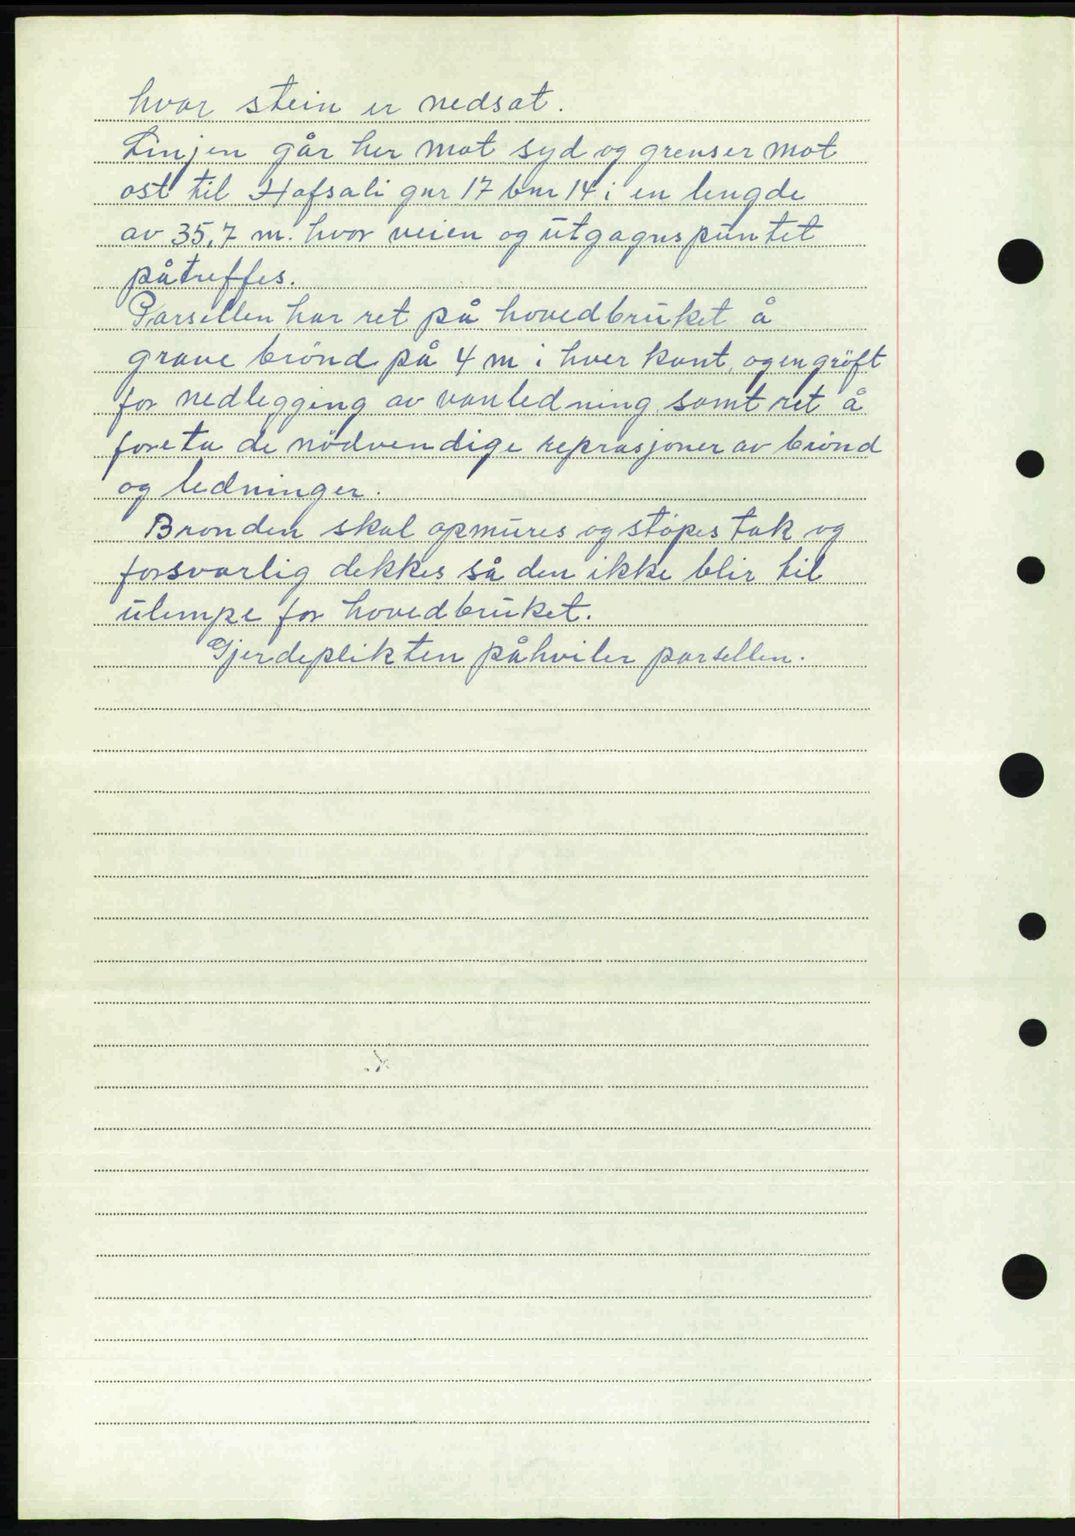 hvor stein er nedsat.
Linjen går her mot syd og grenser mot
ost til Hafsali gnr 17 bnr 14 i en lengde
av 35,7 m. hvor veien og utgagnspuntet
påtreffes.
Parsellen har ret på hovedbruket å
grave brönd på 4 m i hver kant, og en gröft
for nedlegging av vanledning samt ret å
foreta de nödvendige reprasjoner av brönd
og ledninger.
Bronden skal opmures og stöpes tak og
forsvarlig dekkes så den ikke blir til
ulempe for hovedbruket.
Gjerdeplikten påhviler parsellen.